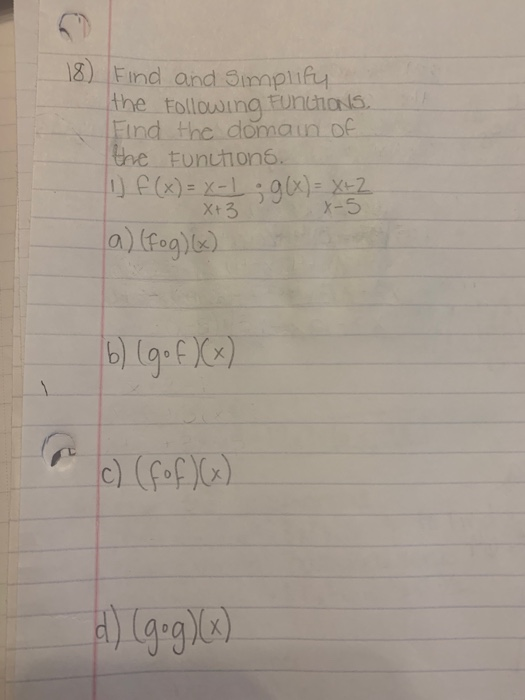 18) Find and Simplify
the Following Functions.
Find the domain of
the Functions.
1) f(x) = x-1/x+3 ; g(x) = x+2/x-5
a) (f∘g)(x)
b) (g∘f)(x)
c) (f∘f)(x)
d) (g∘g)(x)